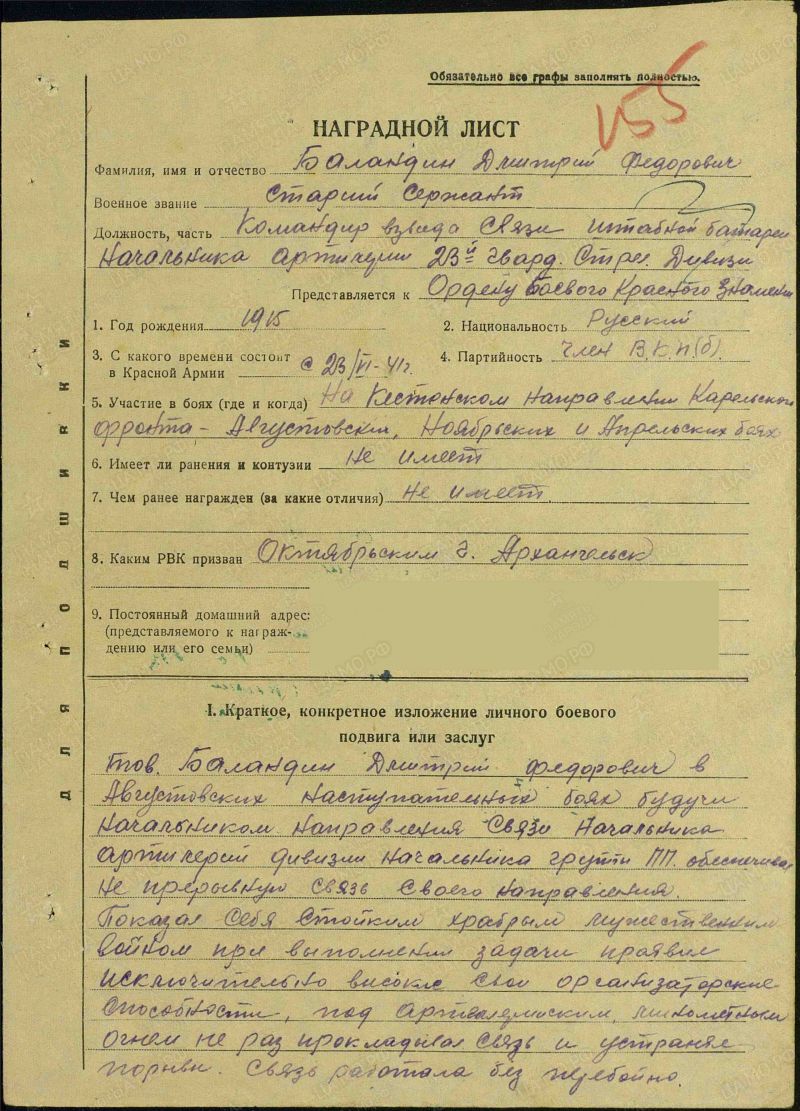 Обязательно все графы заполнять полностью.
155
НАГРАДНОЙ ЛИСТ
Фамилия, имя и отчество Баландин Дмитрий Федорович
Военное звание Старший Сержант
Должность, часть Командир взвода связи штабной батареи
Начальника артилерии 23й Гвард. Стрел. Дивизи
Представляется к Ордену Боевого Красного Знамени
1. Год рождения 1915
2. Национальность Русский
3. С какого времени состоит в Красной Армии с 23/VI-41г.
4. Партийность член В.К.П(б).
5. Участие в боях (где и когда) На Кестенском направлении Карельского
фронта - Августовских, Ноябрьских и Апрельских боях
6. Имеет ли ранения и контузии не имеет
7. Чем ранее награжден (за какие отличия) не имеет.
8. Каким РВК призван Октябрьским г. Архангельск
9. Постоянный домашний адрес:
(представляемого к награж-
дению или его семьи)
Для подшивки
I. Краткое, конкретное изложение личного боевого
подвига или заслуг
тов. Баландин Дмитрий Федорович в
Августовских наступательных боях будучи
Начальником направления связи Начальника
артилерии дивизии начальника группы ПП. обеспечивал
не прерывную связь своего направления.
Показал себя стойким храбрым мужественным
войном при выполнении задачи проявил
исключительно высокие свои организаторские
способности, под артилерийским, минометным
огнем не раз прокладывал связь и устранял
порывы. Связь работала без перебойно.